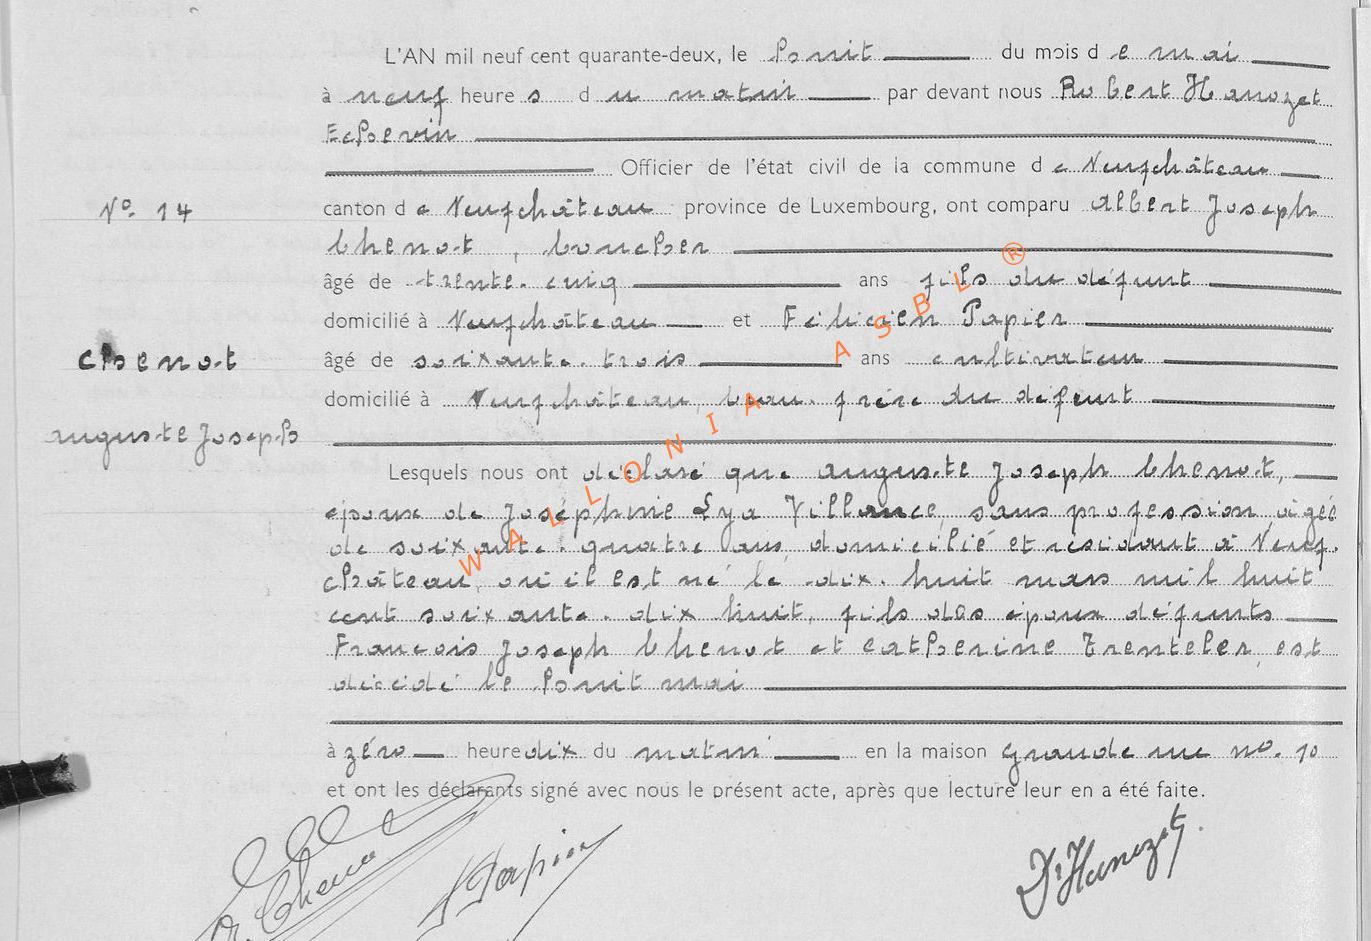 L'AN mil neuf cent quarante-deux, le huit du mois de mai
à neuf heures du matin par devant nous Robert Hanozet
Echevin
Officier de l'état civil de la commune de Neufchâteau
N° 14
canton de Neufchâteau province de Luxembourg, ont comparu Albert Joseph
Chenot, boucher
âgé de trente-cinq ans fils du défunt
domicilié à Neufchâteau et Félicien Papier
Chenot
âgé de soixante-trois ans cultivateur
domicilié à Neufchâteau, beau-frère du défunt
Auguste Joseph
Lesquels nous ont déclaré que Auguste Joseph Chenot,
époux de Joséphine Lya Villance, sans profession, âgé
de soixante-quatre ans, domicilié et résidant à Neuf-
château, où il est né le dix-huit mars mil huit
cent soixante-dix huit, fils des époux défunts
François Joseph Chenot et Catherine Trenteler, est
décédé le huit mai
à zéro heure dix du matin en la maison Grande rue no. 10
et ont les déclarants signé avec nous le présent acte, après que lecture leur en a été faite.
A. Chenot Papier Dr Hanozet
WALLONIA ASBL ®